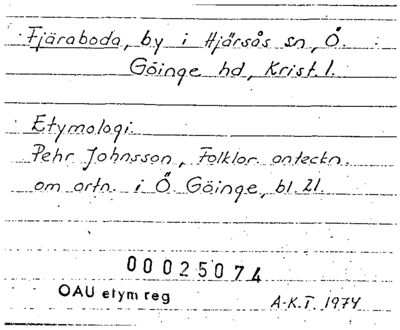 Fjäraboda, by i Hjärsås sn, Ö.
Göinge hd, Krist. l.
Etymologi.
Pehr Johnsson, Folklor. anteckn.
om ortn. i Ö Göinge, bl. 21.
00025074
OAU etym reg
A-K.T. 1974